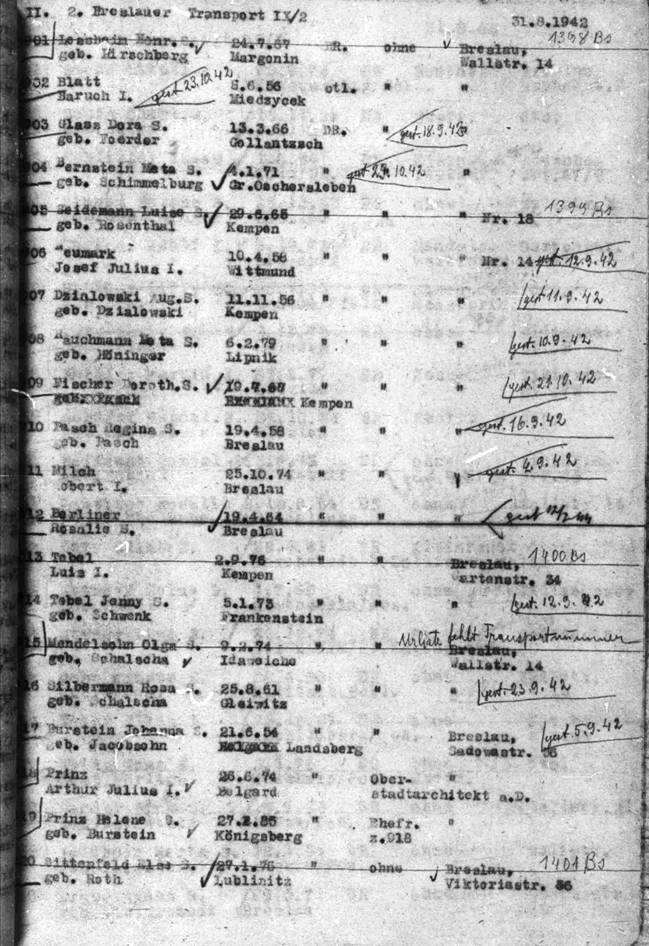 II. 2. Breslauer Transport IX/2 31.8.1942
901 Lessheim Henr. S. 24.7.67 DR. ohne Breslau, 1398 Bs
geb. Hirschberg Margonin Wallstr. 14
902 Blatt 5.6.56 stl. " "
Baruch I. gest 23.10.42 Miedzycek
903 Glass Dora S. 13.3.66 DR. " gest. 18.9.42
geb. Foerder Gollantzsch
904 Bernstein Meta S. 4.1.71 " gest 29.10.42 "
geb. Schimmelburg Gr.Oschersleben
905 Seidemann Luise S. 29.6.65 " " Nr. 18 1399 Bs
geb. Rosenthal Kempen
906 Neumark 10.4.58 " " Nr. 14 gest. 12.9.42
Josef Julius I. Wittmund
907 Dzialowski Aug.S. 11.11.56 " " " gest 11.9.42
geb. Dzialowski Kempen
908 Rauchmann Meta S. 6.2.79 " " " gest. 10.9.42
geb. Höninger Lipnik
09 Fischer Doroth.S. 19.7.67 " " " gest. 21.10.42
geb. Kempen
10 Pasch Regina S. 19.4.58 " " " gest. 16.9.42
geb. Pasch Breslau
11 Milch 25.10.74 " " " gest 4.9.42
Robert I. Breslau
12 Berliner 19.4.64 " " " gest
Rosalie S. Breslau
13 Tebel 2.9.76 " " Breslau, 1400 Bs
Luis I. Kempen Gartenstr. 34
14 Tebel Jenny S. 5.1.73 " " " gest. 12.9.42
geb. Schwenk Frankenstein
15 Mendelsohn Olga S. 9.2.74 " " fehlt Transportnummer Breslau,
geb. Schalscha Idaweiche Wallstr. 14
16 Silbermann Rosa S. 25.8.61 " " " gest. 23.9.42
geb. Schalscha Gleiwitz
17 Burstein Johanna S. 21.6.54 " " Breslau, gest. 5.9.42
geb. Jacobsohn Landsberg Sadowastr. 56
18 Prinz 26.6.74 " Ober- "
Arthur Julius I. Belgard stadtarchitekt a.D.
19 Prinz Helene S. 27.2.85 " Ehefr. "
geb. Burstein Königsberg z.918
20 Sittenfeld Else S. 27.1.76 " ohne Breslau, 1401 Bs
geb. Roth Lublinitz Viktoriastr. 56